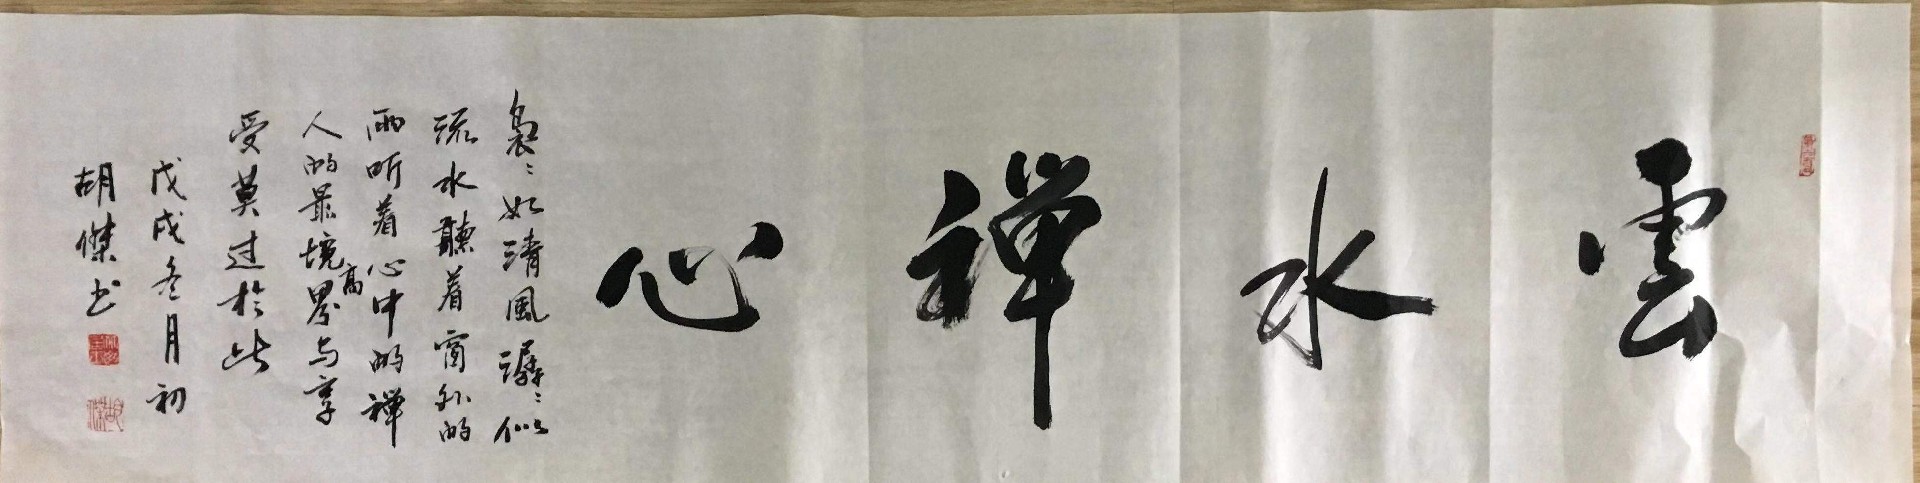 雲水禪心
裊〻如清風潺〻似
流水聽着窗外的
雨听着心中的禅
人的最高境界与享
受莫过於此
戊戌冬月初
胡傑书
胡傑